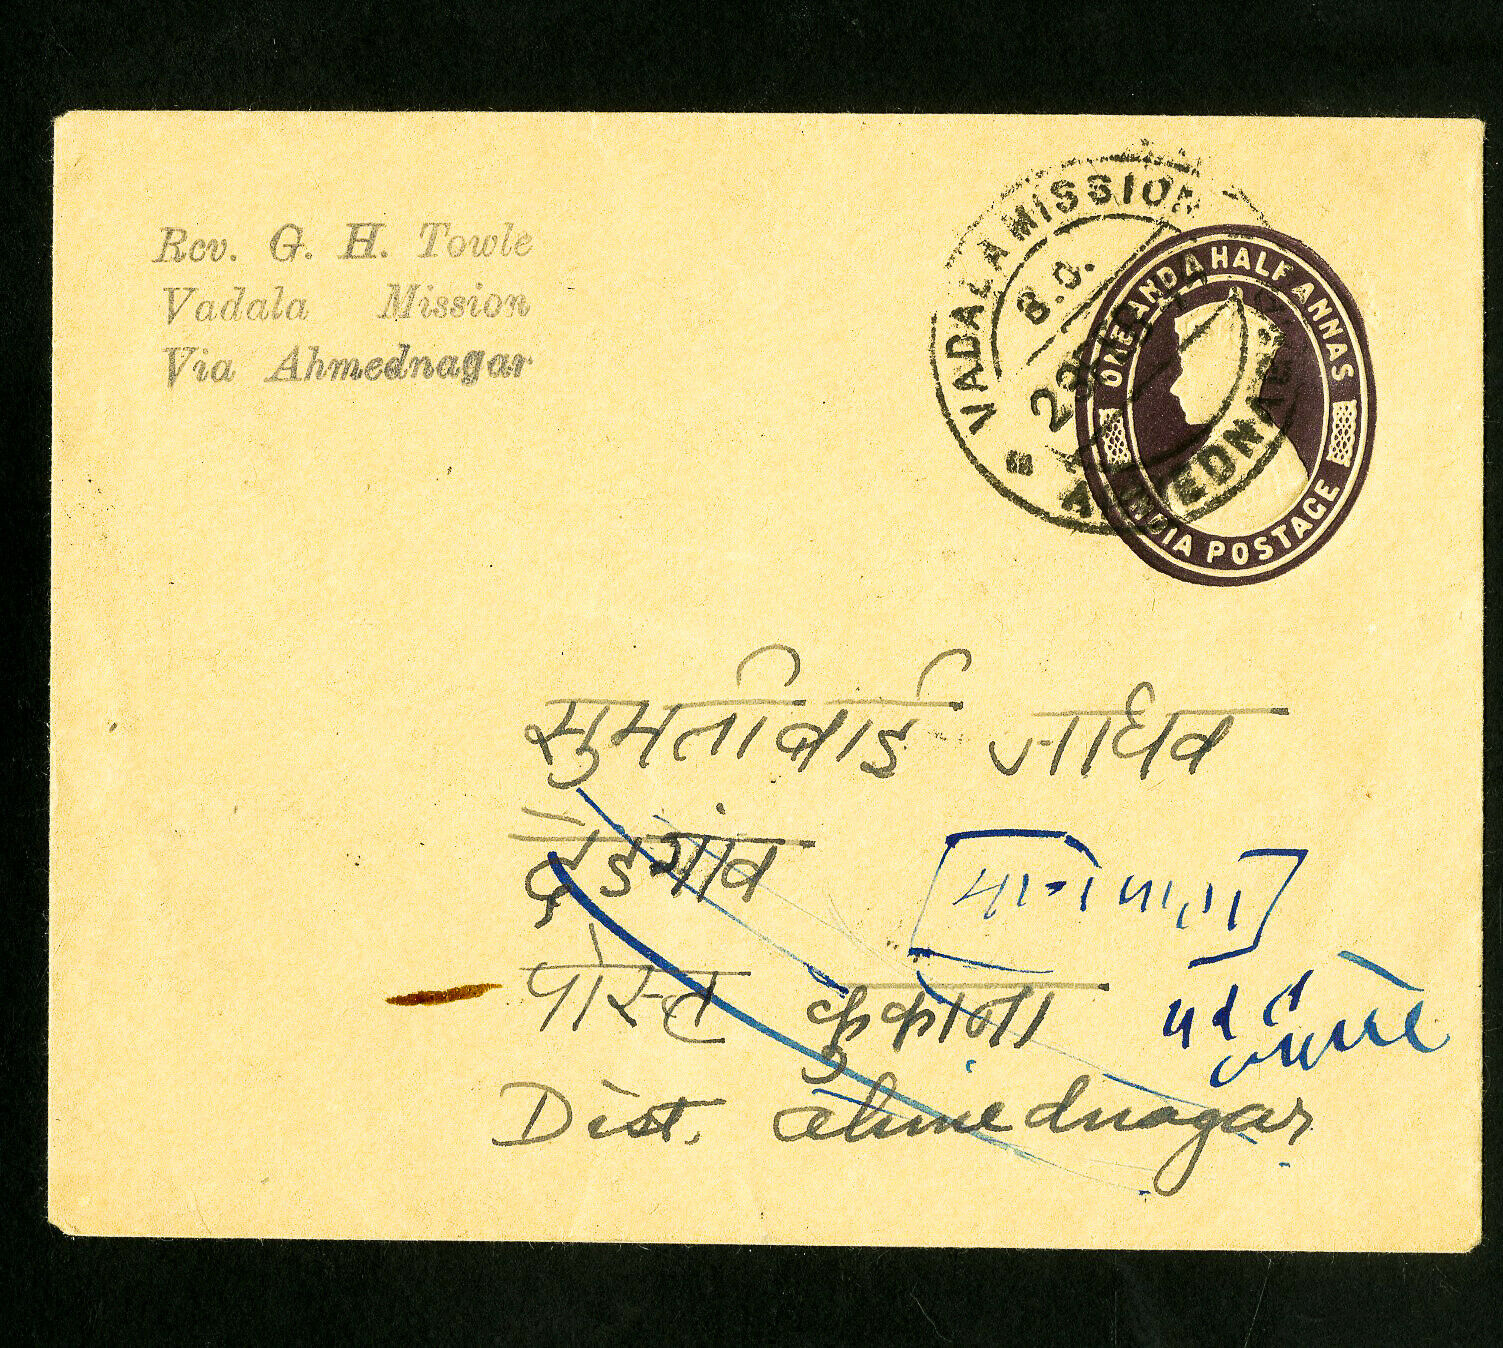 Rev. G. H. Towle
Vadala Mission
Via Ahmednagar
VADALA MISSION
S.O.
29
AHMEDNAGAR
ONE AND A HALF ANNAS
INDIA POSTAGE
सुमतीबाई जाधव
देडगांव
पोस्ट कुकाना
Dist. Ahmednagar